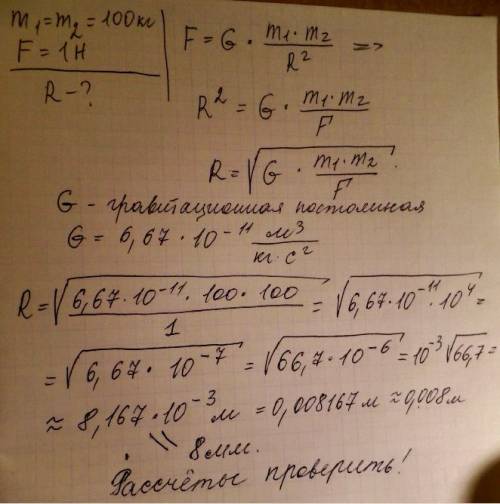 m₁ = m₂ = 100 кг
F = 1 Н
R - ?
F = G · m₁ · m₂ / R² =>
R² = G · m₁ · m₂ / F
R = √(G · m₁ · m₂ / F)
G - гравитационная постоянная
G = 6,67 · 10⁻¹¹ м³ / кг · с²
R = √(6,67 · 10⁻¹¹ · 100 · 100 / 1) = √(6,67 · 10⁻¹¹ · 10⁴) =
= √(6,67 · 10⁻⁷) = √(66,7 · 10⁻⁶) = 10⁻³ √66,7 =
≈ 8,167 · 10⁻³ м = 0,008167 м ≈ 0,008 м
= 8 мм.
Рассчёты проверить!